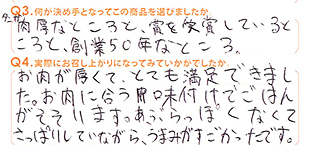 Q3.何が決め手となってこの商品を選びましたか
肉厚なところと、賞を受賞しているところ
ところと、創業50年なところ。
Q4.実際にお召し上がりになってみていかがでしたか
お肉が厚くて、とても満足できまし
た。お肉に合う味付けでごはん
がそそります。あぶらっぽくなくて
さっぱりしていながら、うまみがすごかったです。